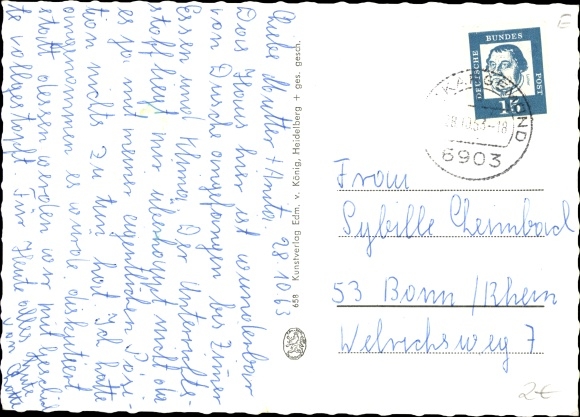 Liebe Mutter + Anita, 28.10.63
Das Haus hier ist wunderbar
von Dusche angefangen bis Zimmer
Essen und Klima. Der Unterrichts-
stoff liegt mir überhaupt nicht da
es ja mit meiner eigentlichen Posi-
tion nichts zu tun hat. Ich hatte
angenommen es würde diskutiert
statt dessen werden wir mit Geschich-
te vollgestopft. Für Heute alles Gute
658 Kunstverlag Edm. v. König, Heidelberg + ges. gesch.
DEUTSCHE BUNDES POST
15
6903
Frau
Sybille Cheimbach
53 Bonn / Rhein
Welrichsweg 7
2€
E